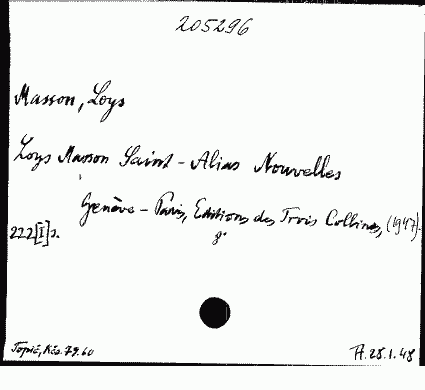 205296
Masson, Loys
Loys Masson Saint-Alias Nouvelles
Genève - Paris, Editions des Trois Collines, (1947).
222[I]s. 8°
Topič, Kčs. 79.60
28.1.48